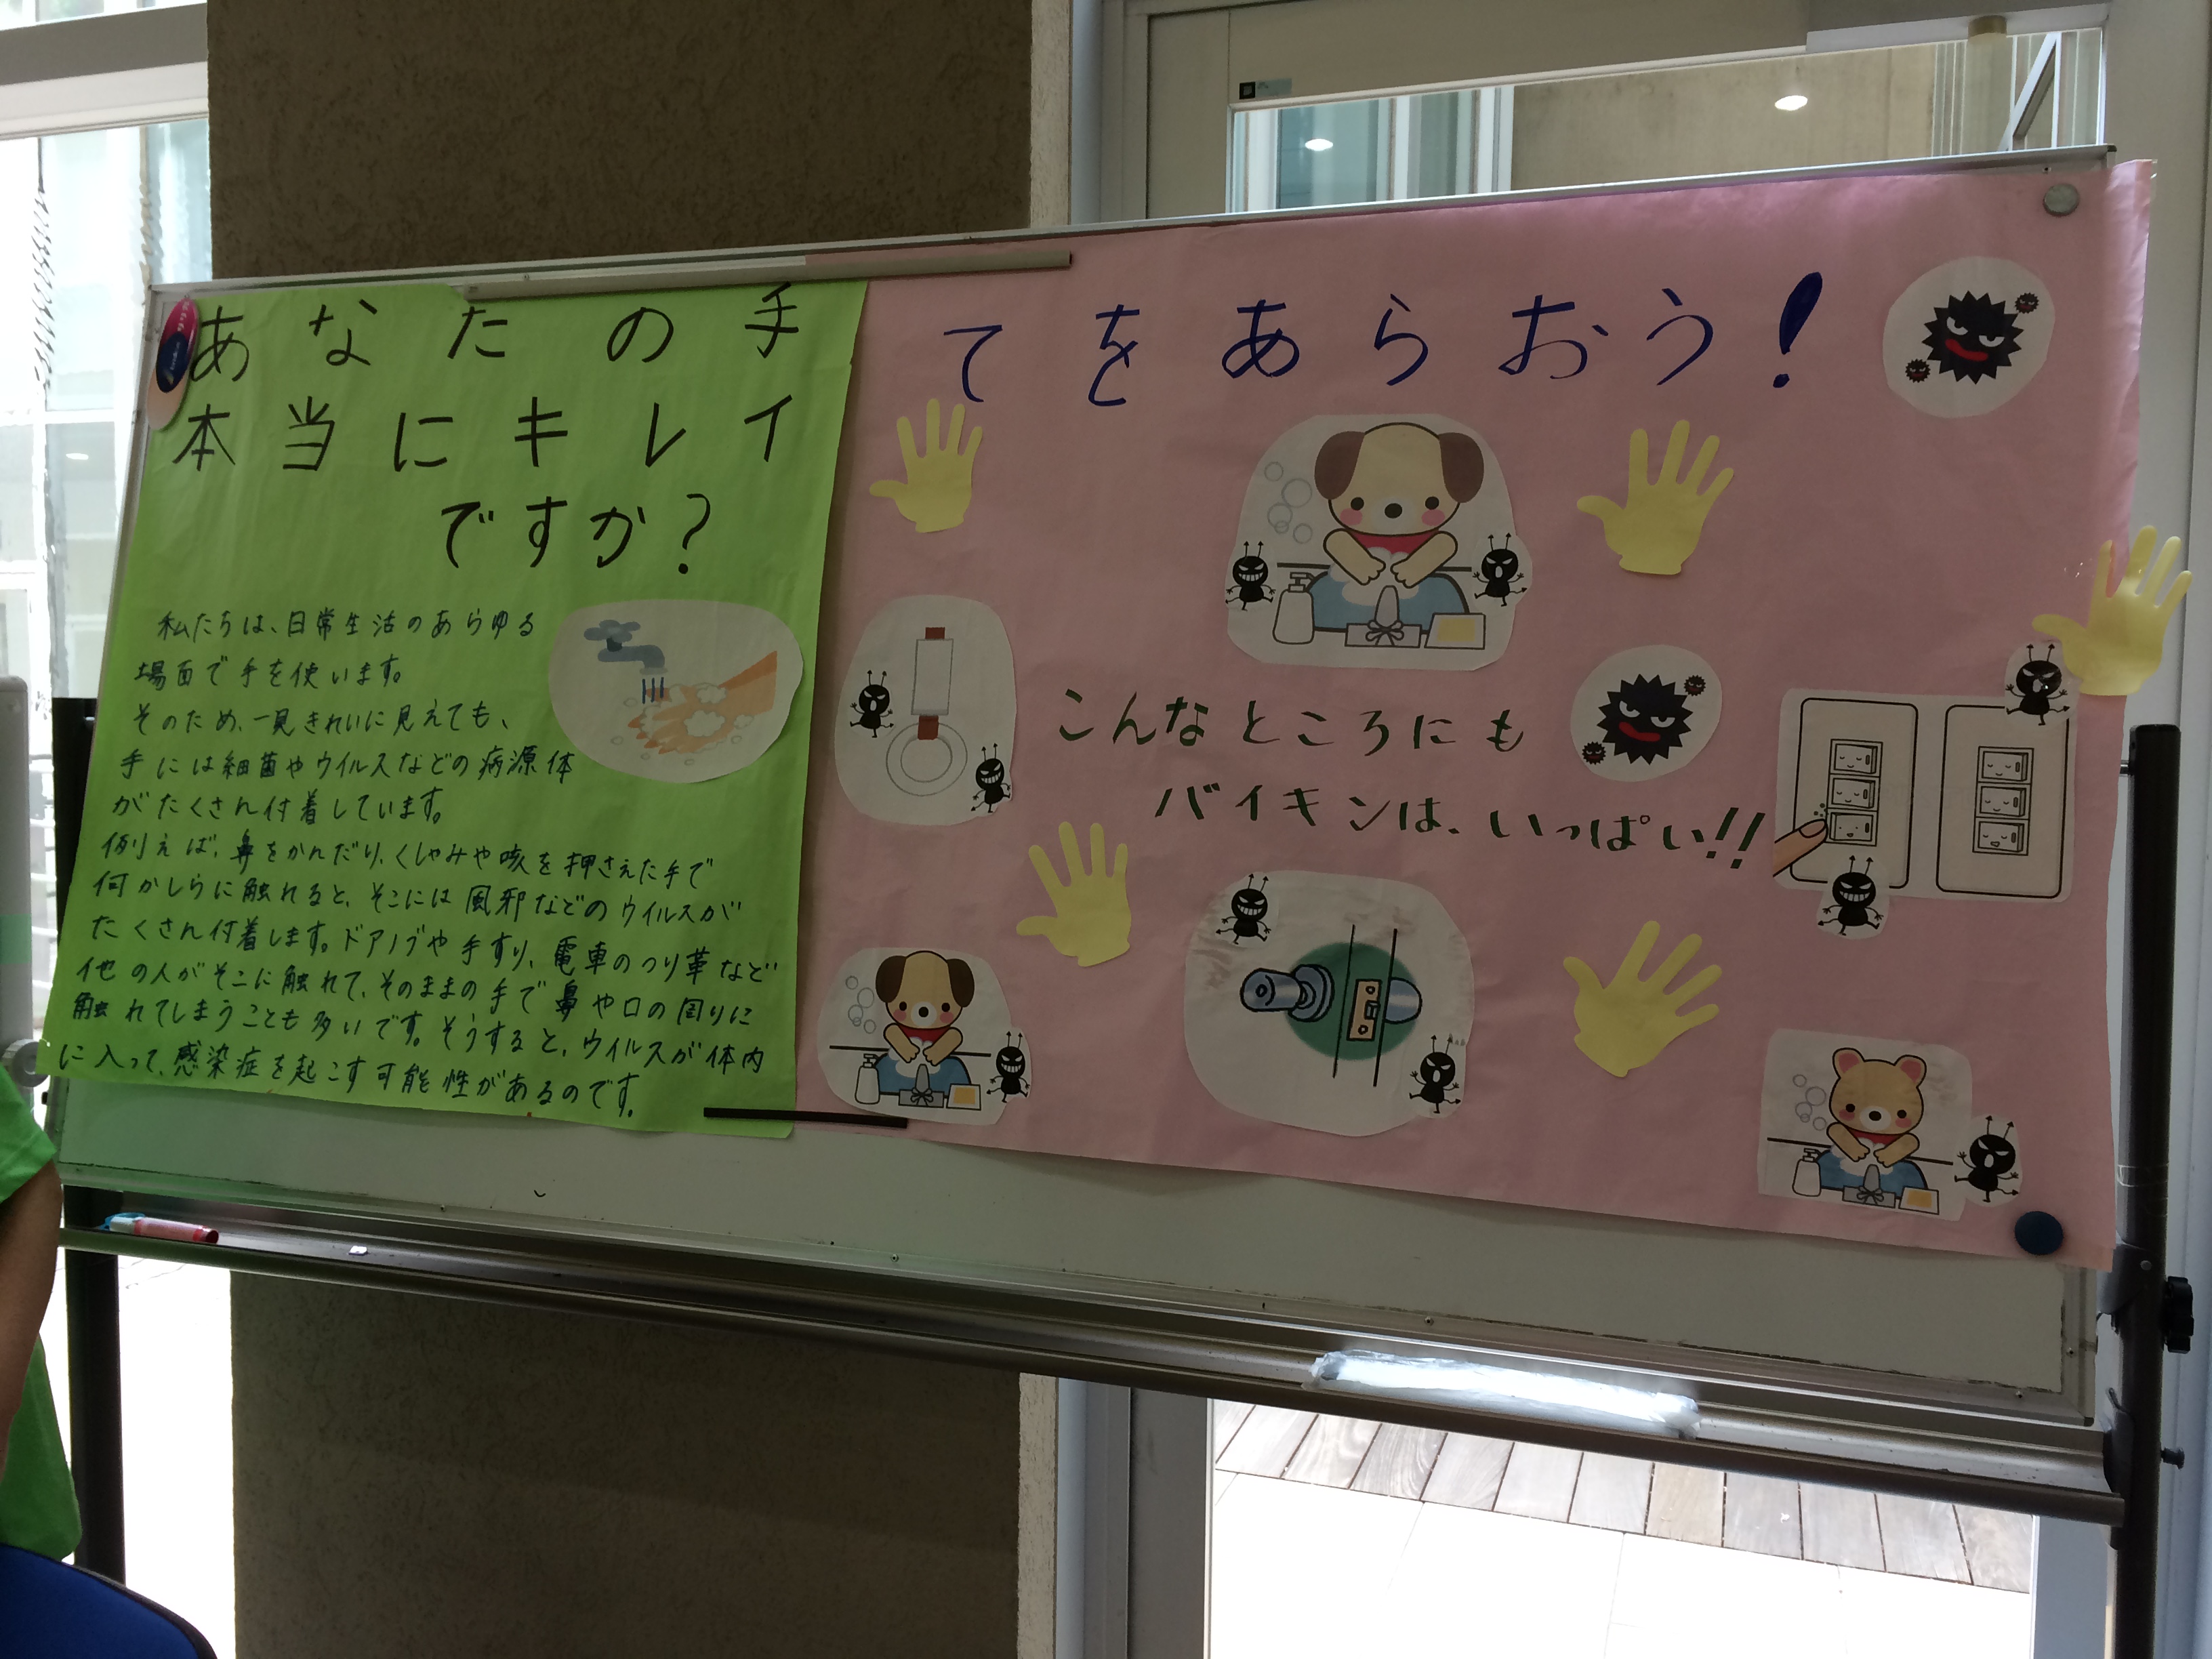 あなたの手
本当にキレイ
ですか?
私たちは、日常生活のあらゆる
場面で手を使います。
そのため、一見きれいに見えても、
手には細菌やウイルスなどの病源体
がたくさん付着しています。
例えば、鼻をかんだり、くしゃみや咳を押さえた手で
何かしらに触れると、そこには風邪などのウイルスが
たくさん付着します。ドアノブや手すり、電車のつり革など
他の人がそこに触れて、そのままの手で鼻や口の周りに
触れてしまうことも多いです。そうすると、ウイルスが体内
に入って、感染症を起こす可能性があるのです。
てをあらおう!
こんなところにも
バイキンは、いっぱい!!